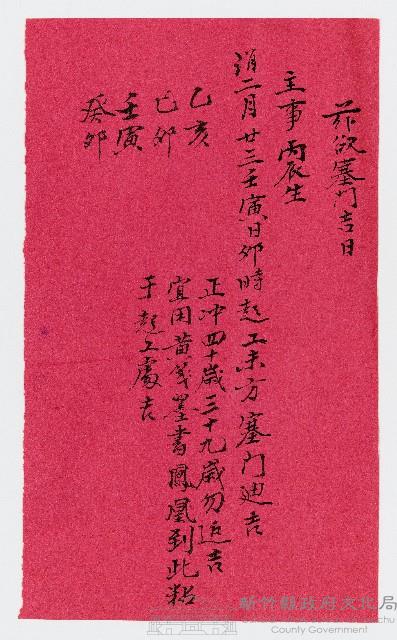 茲欲塞門吉日
主事丙辰生
涓二月廿三壬寅日卯時起工未方塞門迪吉
正冲四十歲三十九歲勿近吉
宜用黃箋墨書鳳凰到此粘
于起工處吉
乙亥
己卯
壬寅
癸卯
新竹縣政府文化局
County Government